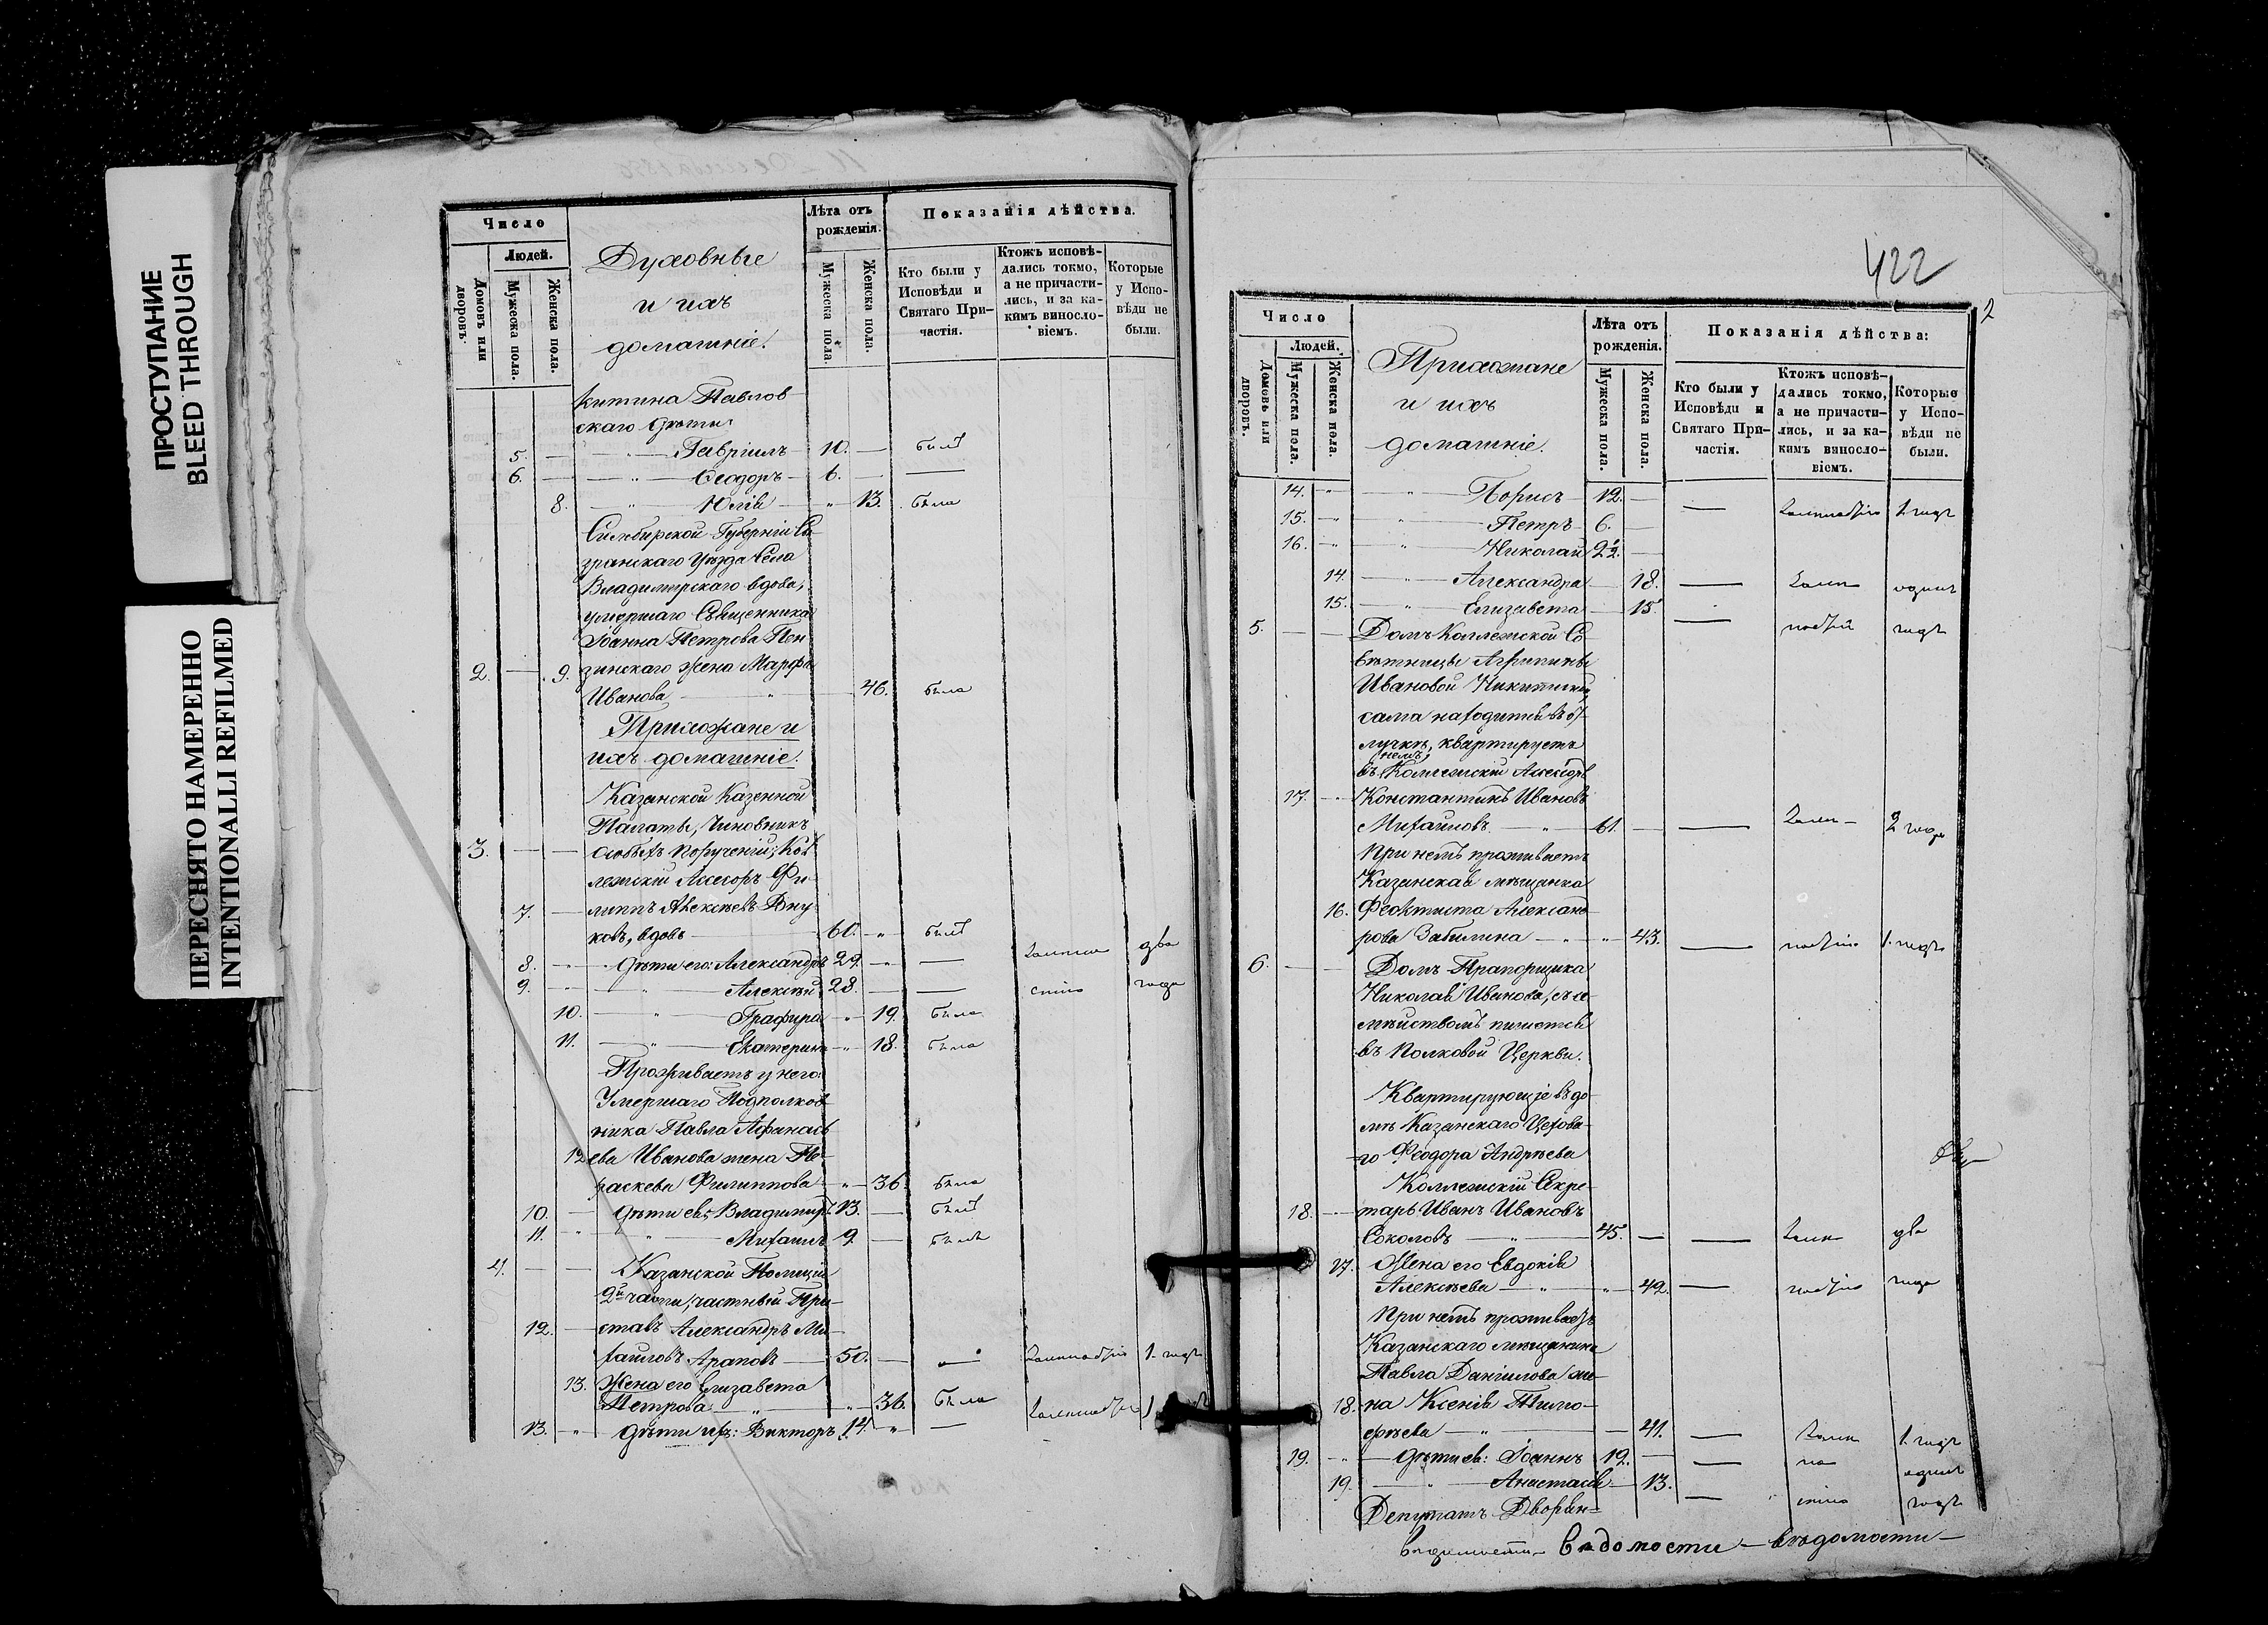 ПРОСТУПАНИЕ
BLEED THROUGH
ПЕРЕСНЯТО НАМЕРЕННО
INTENTIONALLI REFILMED
Число
Людей.
Домовъ или дворовъ.
Мужеска пола.
Женска пола.
Духовные
и ихъ
домашніе.
Лѣта отъ рожденія.
Мужеска пола.
Женска пола.
Показанія дѣйства.
Кто были у Исповѣди и Святаго Причастія.
Ктожъ исповѣдались токмо, а не причастились, и за какимъ винословіемъ.
Которые у Исповѣди не были.
китина Павлов
скаго дѣти:
5. — Гавріилъ 10. — былъ
6. — " Ѳеодоръ 6. —
8. — " Юлія " 13. была
Симбирской Губерніи Сы
зранскаго Уѣзда Села
Владимірскаго вдова,
умершаго Священника
Іоанна Петрова Пен
2. — 9. зинскаго жена Марфа
Иванова " 46. была
Прихожане и
ихъ домашніе.
Казанской Казенной
Палаты, Чиновникъ
3. — — особыхъ порученій, Кол
лежскій Ассесоръ Фи
7. — липпъ Алексѣевъ Вну
ковъ, вдовъ 60. " былъ
8. " дѣти его: Александръ 29. " — два
9. " " Алексѣй 28. — — года
10. — " Глафира " 19. была
11. — " Екатерина " 18. была
Проживаетъ у него:
Умершаго Подполков
ника Павла Аѳанась
12. ева Иванова жена Па
раскева Филиппова " 36. была
10. — дѣти ея: Владиміръ 13. — былъ
11. " " Михаилъ 9. — былъ
4. — — Казанской Полиціи
2й части, частный При
12. — ставъ Александръ Ми
хайловъ Араповъ 50. — — 1. годъ
13. Жена его Елизавета
Петрова " " 36. была
13. " дѣти ихъ: Викторъ 14. " —
422
2
Число
Людей.
Домовъ или дворовъ.
Мужеска пола.
Женска пола.
Прихожане
и ихъ
домашніе.
Лѣта отъ рожденія.
Мужеска пола.
Женска пола.
Показанія дѣйства:
Кто были у Исповѣди и Святаго Причастія.
Ктожъ исповѣдались токмо, а не причастились, и за какимъ винословіемъ.
Которые у Исповѣди не были.
14. " " Борисъ 12. — — 1. годъ
15. " " Петръ 6. —
16. " " Николай 2½. —
14. — " Александра — 18. — одинъ
15. — " Елизавета — 15. — годъ
5. — — Домъ Коллежской Со
вѣтницы Агрипины
Ивановой Никитиной,
сама находится въ от
лучкѣ, квартируетъ
въ немъ, Коллежскій Ассесоръ
17. — Константинъ Ивановъ
Михайловъ " 61. — — 2 года
При немъ проживаетъ
Казанская мѣщанка
16. Феоктиста Александ
рова Забилина " " 43. — 1. годъ
6. — — Домъ Прапорщика
Николая Иванова, съ се
мѣйствомъ пишется
въ Полковой Церкви.
Квартирующіе въ до
мѣ Казанскаго Цехова
го Ѳеодора Андрѣева
Коллежскій Секре
18. — тарь Иванъ Ивановъ
Соколовъ " 45. — — два
17. Жена его Евдокія
Алексѣева " " 42. — года
При немъ проживаетъ
Казанскаго мѣщанина
Павла Даніилова же
18. на Ксенія Тимо
фѣева " — 41. — 1. годъ
19. " дѣти ея: Іоаннъ 12. — — одинъ
19. — " Анастасія — 13. — годъ
Депутатъ Дворян=
ведомости — ведомости — вѣдомости —